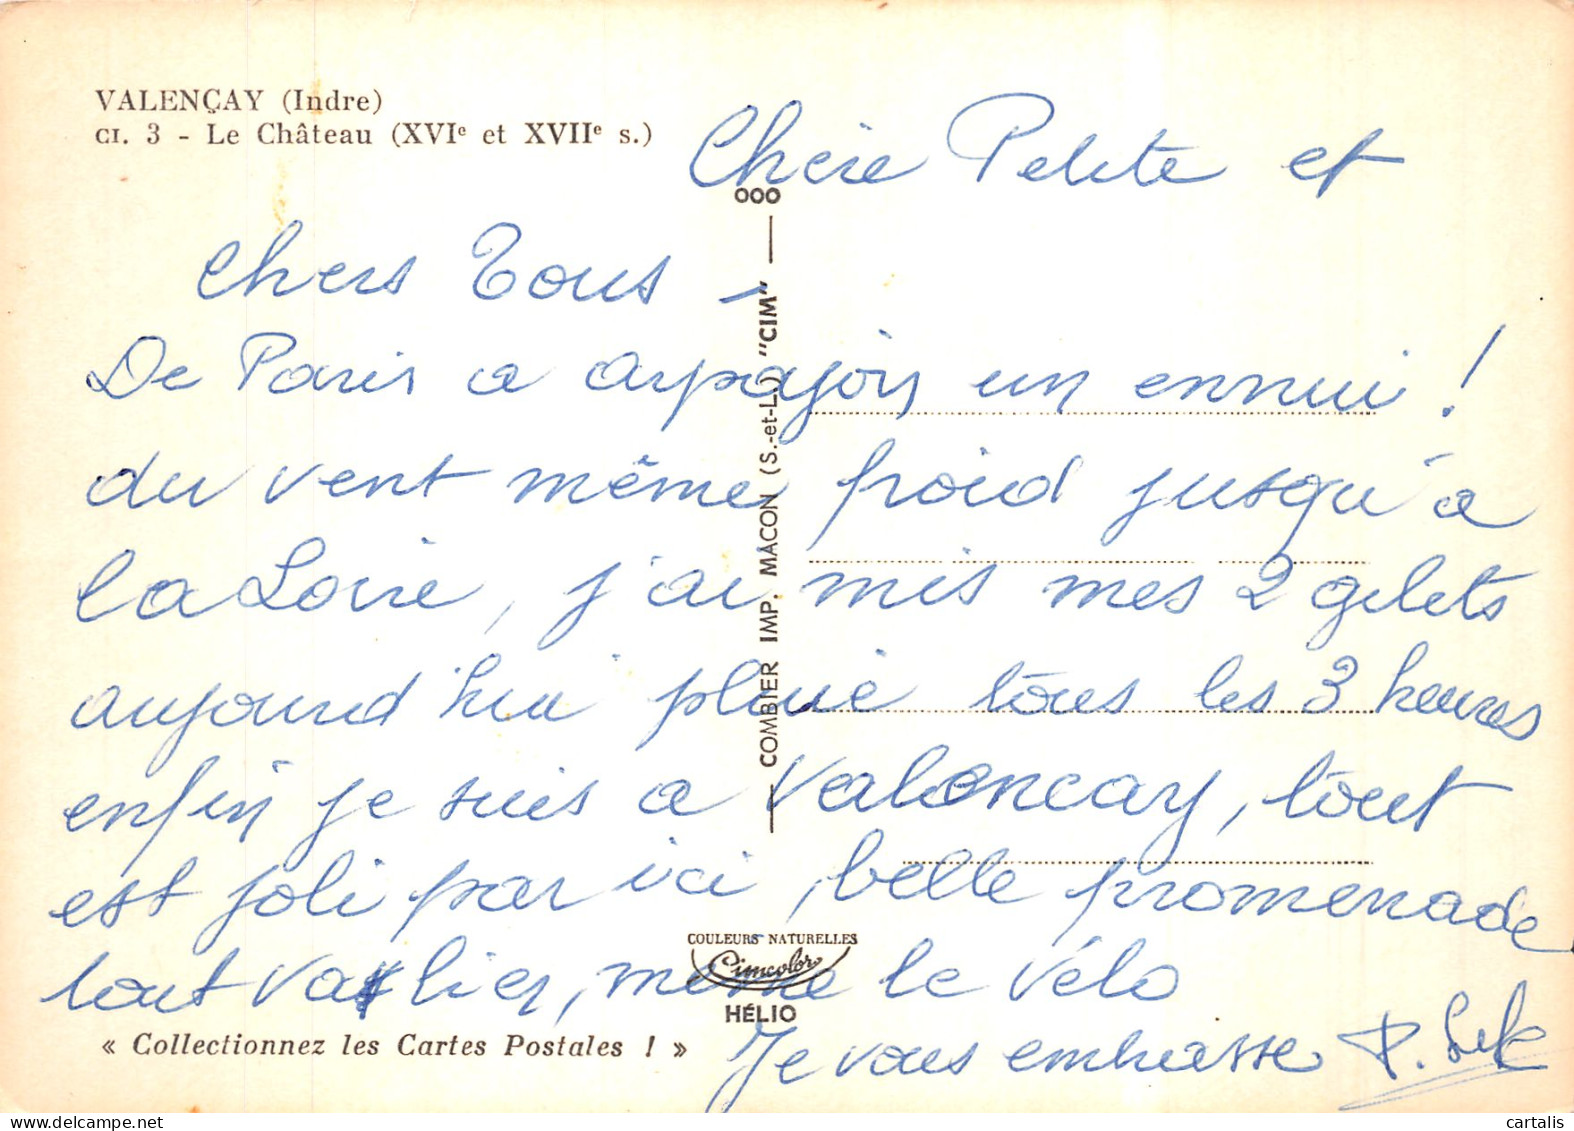 VALENÇAY (Indre)
CI. 3 - Le Château (XVIe et XVIIe s.)
Chère Petite et
Chers Tous -
De Paris a arpajon un ennui !
du vent même froid jusqu'à
la Loire, j'ai mis mes 2 gilets
aujourd'hui pluie tous les 3 heures
enfin je suis a Valencay, tout
est joli par ici, belle promenade
tout va bien, même le vélo
Je vous embrasse P.
OOO
COMBIER IMP. MÂCON (S.-et-L.) "CIM"
COULEURS NATURELLES
Cimcolor
HÉLIO
« Collectionnez les Cartes Postales ! »
cartalis